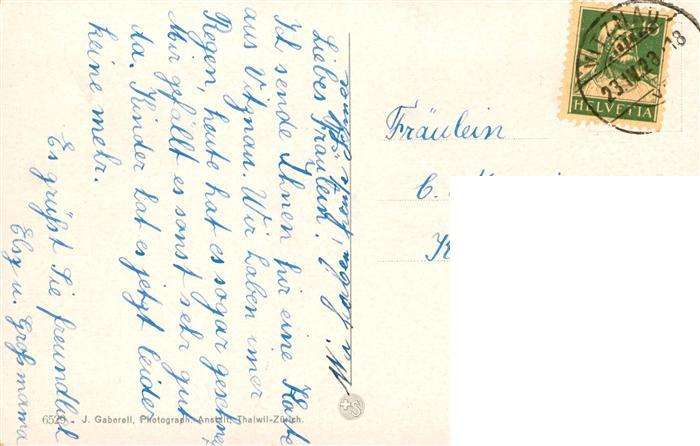 Liebes Fräulein!
Ich sende Ihnen hir eine Karte
aus Vitznau. Wir haben imer
Regen, heute hat es sogar geschneit
Mir gefällt es sonst sehr gut
da. Kinder hat es jetzt leider
keine mehr.
Es grüßt Sie freundlich
Elsy u. Großmama
Fräulein
C.
K
VITZNAU
23.IV.28-18
HELVETIA
6529 J. Gaberell, Photograph. Anstalt, Thalwil-Zürich.